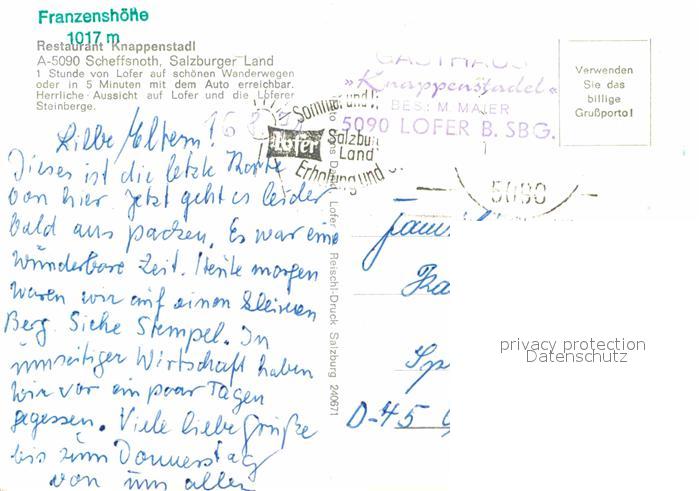 Franzenshöhe
1017 m
Restaurant Knappenstadl
A-5090 Scheffsnoth, Salzburger Land
1 Stunde von Lofer auf schönen Wanderwegen
oder in 5 Minuten mit dem Auto erreichbar.
Herrliche Aussicht auf Lofer und die Loferer
Steinberge.
GASTHAUS
"Knappenstadel"
BES.: M. MAIER
5090 LOFER B. SBG.
Verwenden
Sie das
billige
Grußporto!
Sommer und
Lofer
Salzbur
Land
Erholung und
5090
Liebe Eltern!
Dieses ist die letzte Karte
von hier. Jetzt geht es leider
bald ans packen. Es war eine
wunderbare Zeit. Heute morgen
waren wir auf einen kleinen
Berg. Siehe Stempel. In
umseitiger Wirtschaft haben
wir vor ein paar Tagen
gegessen. Viele liebe Grüße
bis zum Donnerstag
von uns allen
Lofer Reischl-Druck Salzburg 240671
Fam.
D-45
privacy protection
Datenschutz